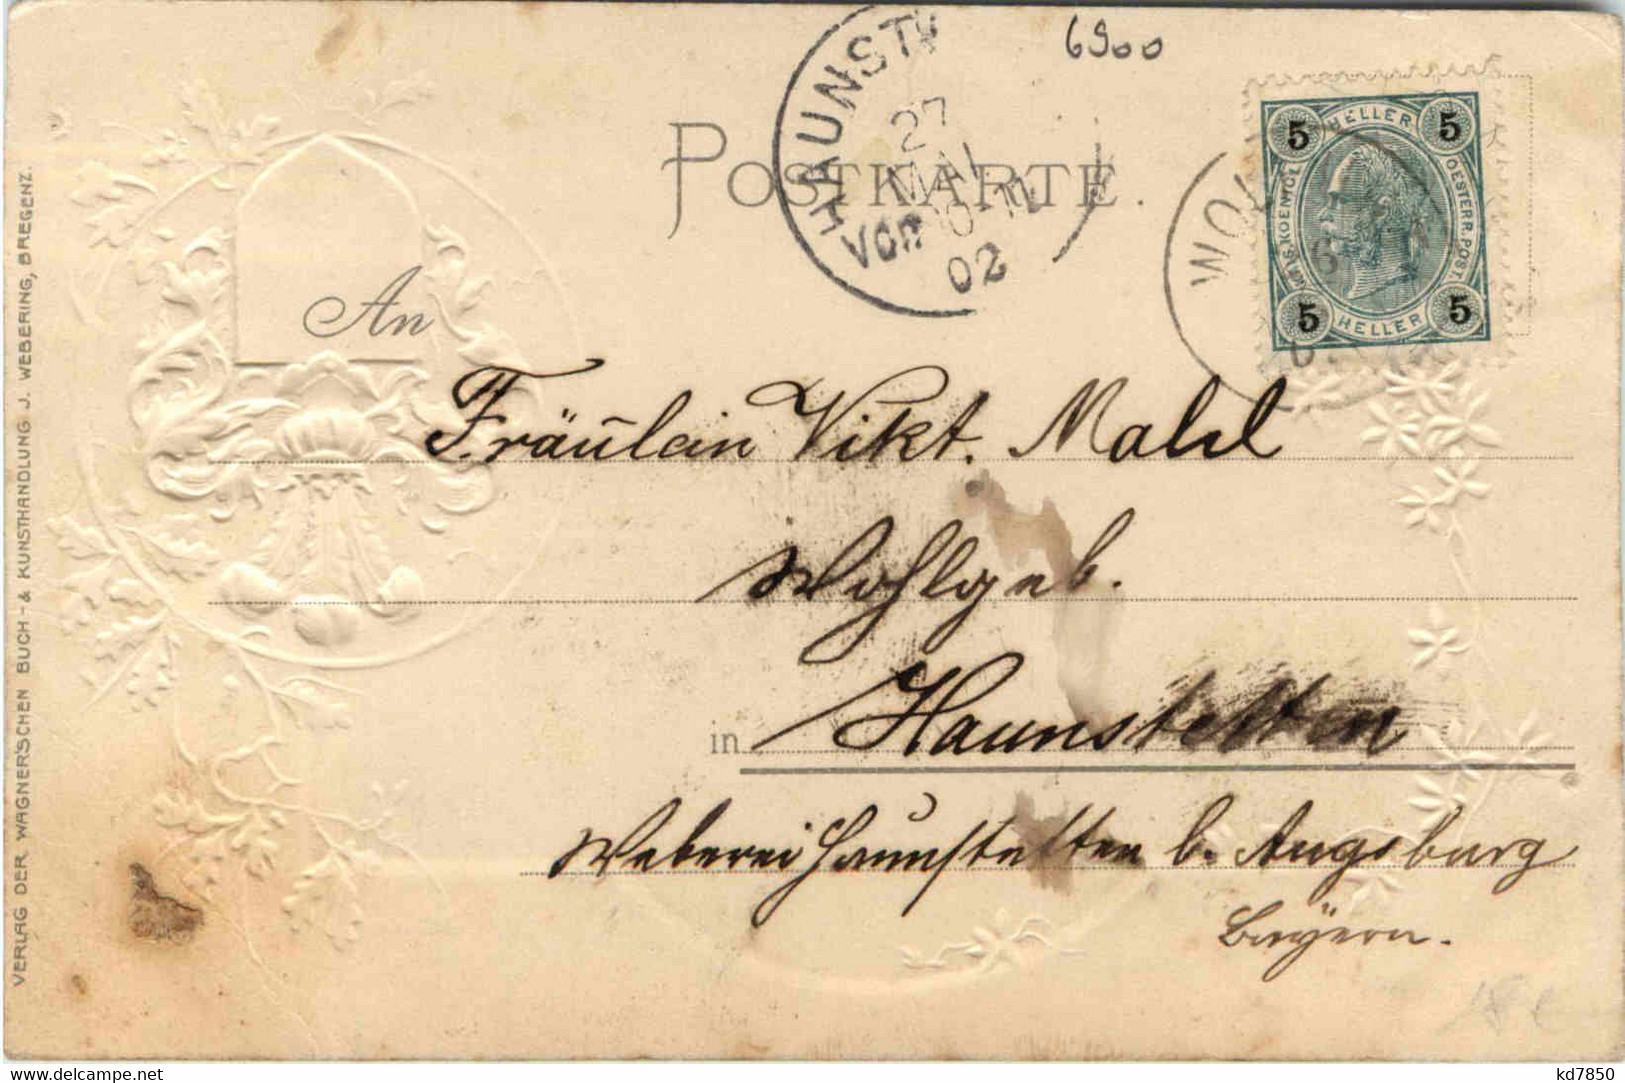 6900
HAUNST
27
MAI
VOR 10-11
02
POSTKARTE.
WOL
5 HELLER 5
OESTERR. POST.
5 HELLER 5
An
Fräulein Vikt. Mahl
Wohlgeb.
in Haunstetten
Weberei Haunstetten b. Augsburg
Bayern.
VERLAG DER WAGNER'SCHEN BUCH- & KUNSTHANDLUNG J. WEBERING, BREGENZ.
kd7850